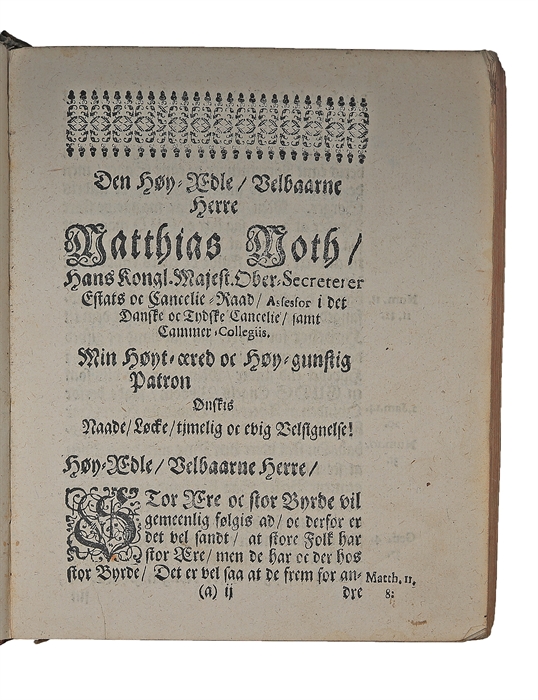 Den Høy-Ædle / Velbaarne
Herre
Matthias Moth /
Hans Kongl. Majest. Ober-Secreterer
Estats oc Cancelie-Raad / Assessor i det
Danske oc Tydske Cancelie / samt
Cammer-Collegiis.
Min Høyt-æred oc Høy-gunstig
Patron
Ønskis
Naade / Løcke / tjmelig oc evig Velsignelse!
Høy-Ædle / Velbaarne Herre /
STor Ære oc stor Byrde vil
gemeenlig følgis ad / oc derfor er
det vel sandt / at store Folk har
stor Ære / men de har oc der hos
stor Byrde / Det er vel saa at de frem for an-
Matth. 11.
8:
(a) ij
dre